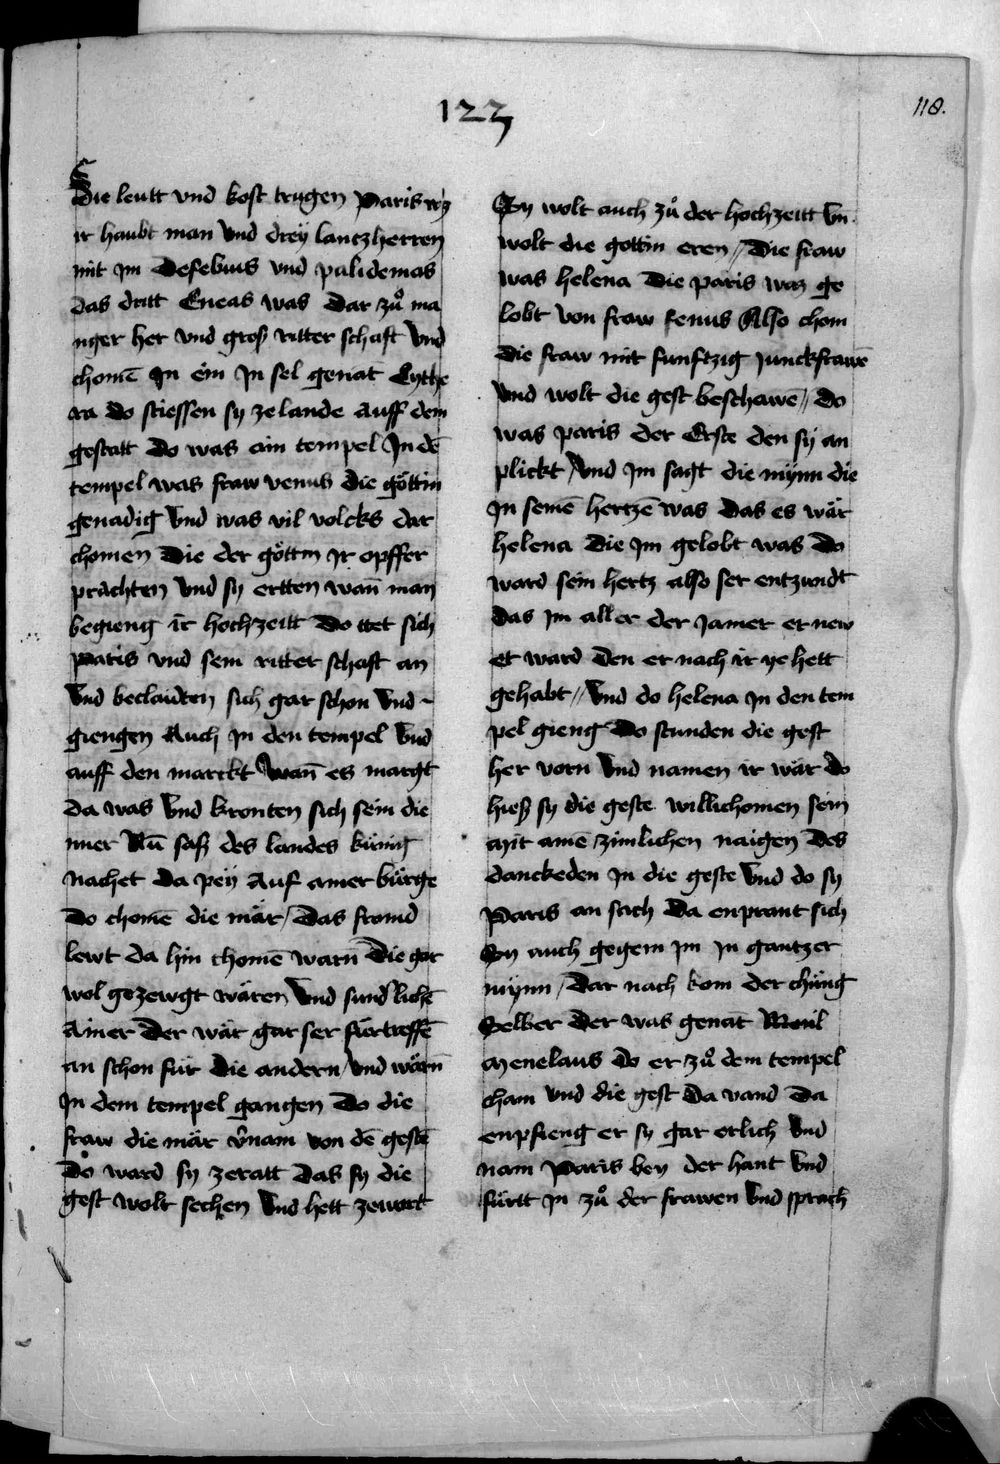 123
118.
Die leutt vnd kost trugen Paris waz
ir haubt man vnd dreÿ lantzherren
mit im Defebius vnd palidemas
das dritt Eneas was dar zů ma
nger her vnd groß ritter schaft vnd
chomē In ein In sel genāt Cythe
ra do stiessen sy ze lande auff dem
gestatt do was ain tempel In dē
tempel was fraw venus die göttin
genadig vnd was vil volcks dar
chomen die der göttin Ir opffer
prachten vnd sy ertten wañ man
begieng ir hochzeitt Do tet sich
Paris vnd sein ritter schaft an
vnd beclaidten sich gar schon vnd
giengen Auch In den tempel vnd
auff den marckt wañ es margt
da was vnd kronten sich sein die
ner Nū saß des landes küinig
nachet da peÿ Auf ainer bürge
Do chomē die mär / das fromd
lewt da hin chomē warn̄ Die gar
wol gezewgt wären vnd sund'lichē
Ainer Der wär gar ser fürtreffē
an schon für die andern / vnd wärn̄
In dem tempel gangen Do die
fraw die mär v'nam von dē gestē
Do ward sy ze ratt das sy die
gest wolt sechen vnd hett ze wort
Sy wolt auch zů der hochzeitt vn̄
wolt die gottin eren // Die fraw
was helena Die paris waz ge
lobt von fraw fenus Also chom
die fraw mit funftzig junckfrawē
vnd wolt die gest beschawē // do
was paris der Erste den sy an
plickt / vnd Im sagt die mÿnn die
In seinē hertzē was das es wär
helena die Im gelobt was do
ward sein hertz also ser entzundt
das Im aller der Jamer er new
et ward den er nach ir ye hett
gehabt // vnd do helena In den tem
pel gieng Do stunden die gest
her vorn vnd namen ir war do
hieß sy die geste willichomen sein
mit ainē zimlichen naigen Des
danckeden In die geste vnd do sy
Paris an sach Da enprant sich
Sy auch gegem Im In gantzer
mÿnn / Dar nach kom der chüng
Selber der was genāt Menl
Menelaus do er zů dem tempel
cham vnd die gest Da vand Da
enpfieng er sy gar erlich vnd
nam Paris bey der hant vnd
fürtt In zů der frawen vnd sprach